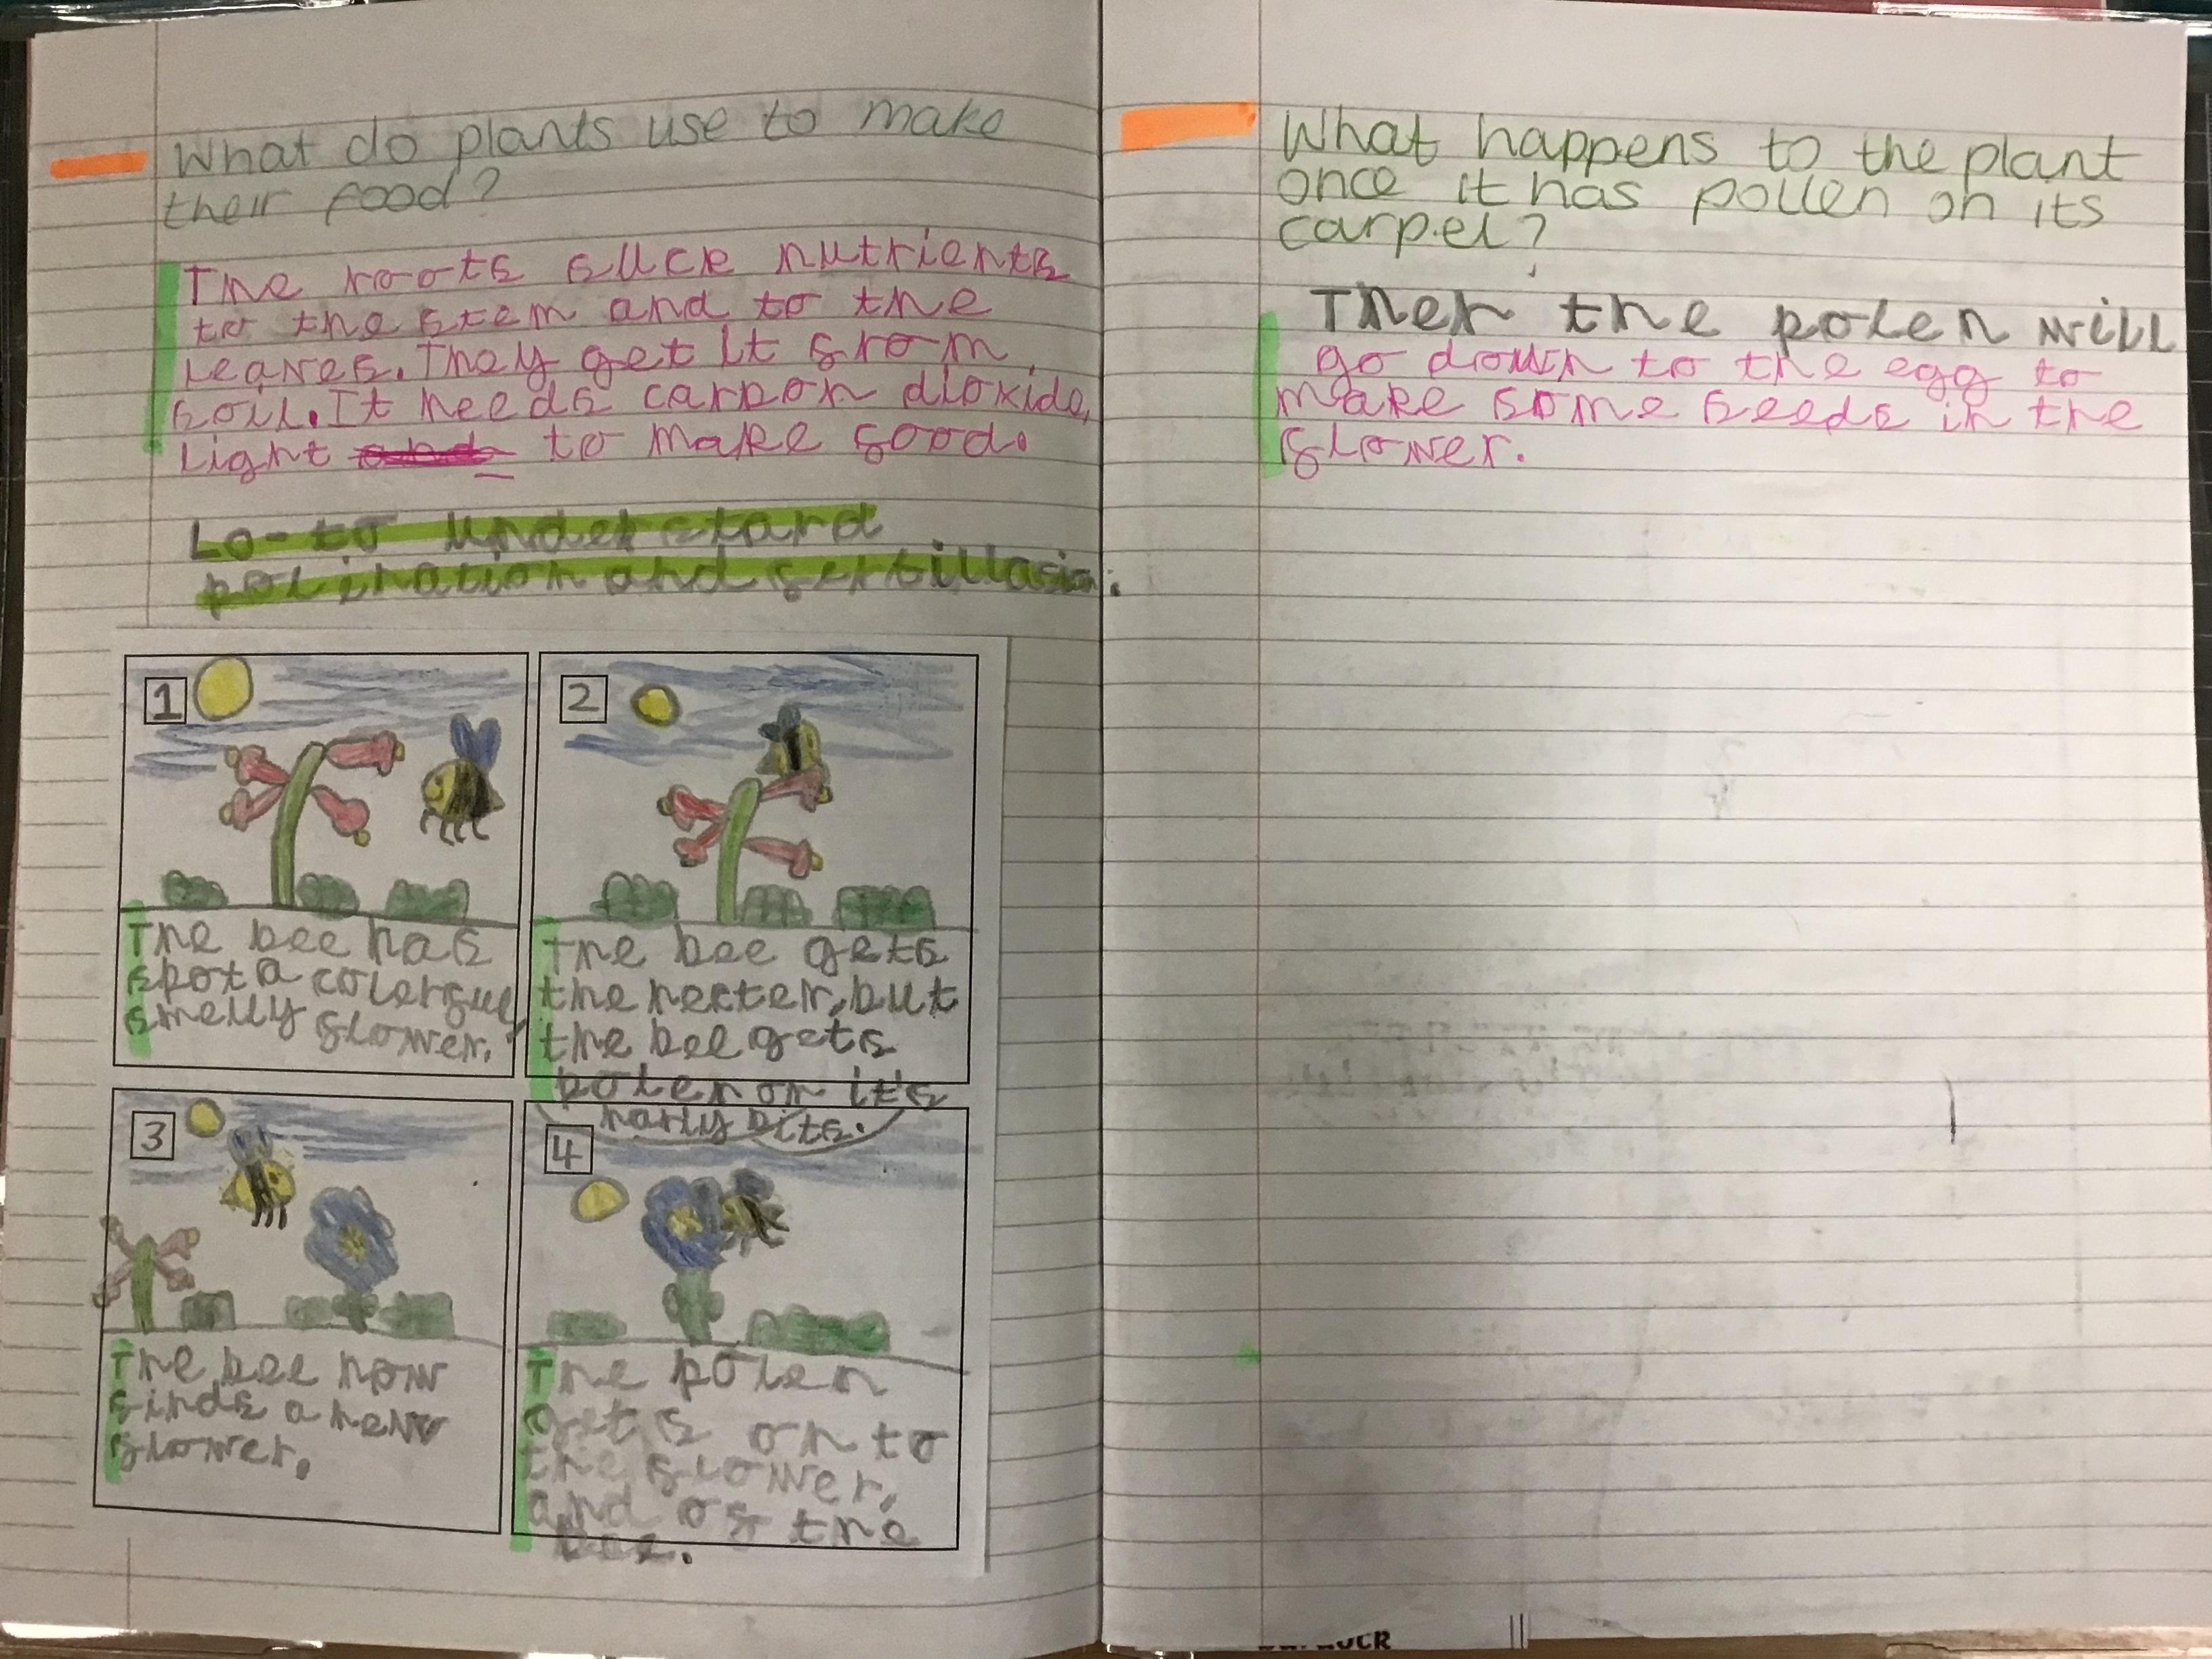 What do plants use to make
their food?
The roots suck nutrients
to the stem and to the
leaves. They get it from
soil. It needs carpon dioxide,
light and to make food.
LO- to understand
polination and fertillasion.
1
The bee has
spot a colerful
smelly flower.
2
The bee gets
the necter, but
the bee gets
polen on it's
harly bits.
3
The bee now
finds a new
flower.
4
The polen
gets on to
the flower,
and of the
bee.
What happens to the plant
once it has pollen on its
carpel?
Then the polen will
go down to the egg to
make some seeds in the
flower.